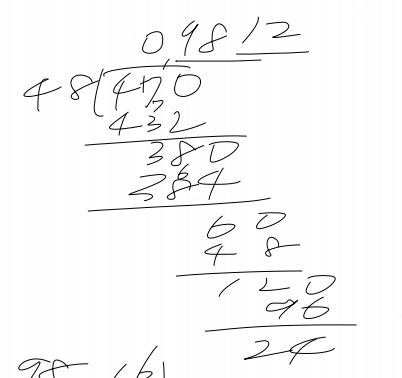 0,9812
48(470
432
380
384
60
48
120
96
24
98